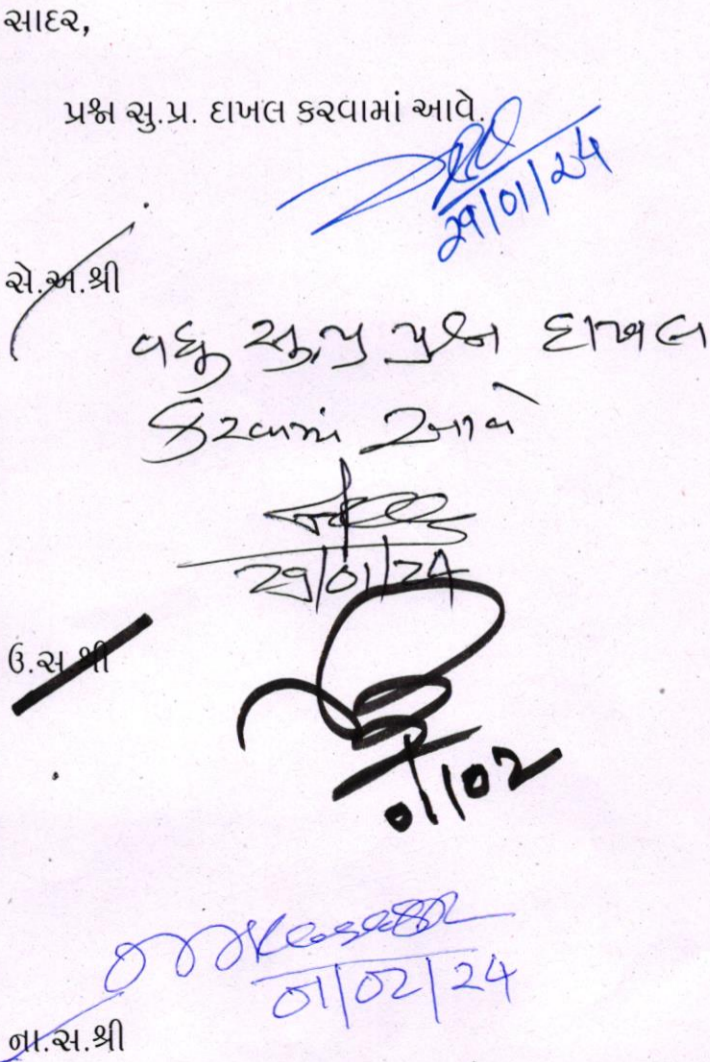 સાદર,
પ્રશ્ન સુ.પ્ર. દાખલ કરવામાં આવે.
29/01/24
સે.અ.શ્રી
વધુ સુ.પ્ર પ્રશ્ન દાખલ
કરવામાં આવે
29/01/24
ઉ.સ.શ્રી
01/02
01/02/24
ના.સ.શ્રી